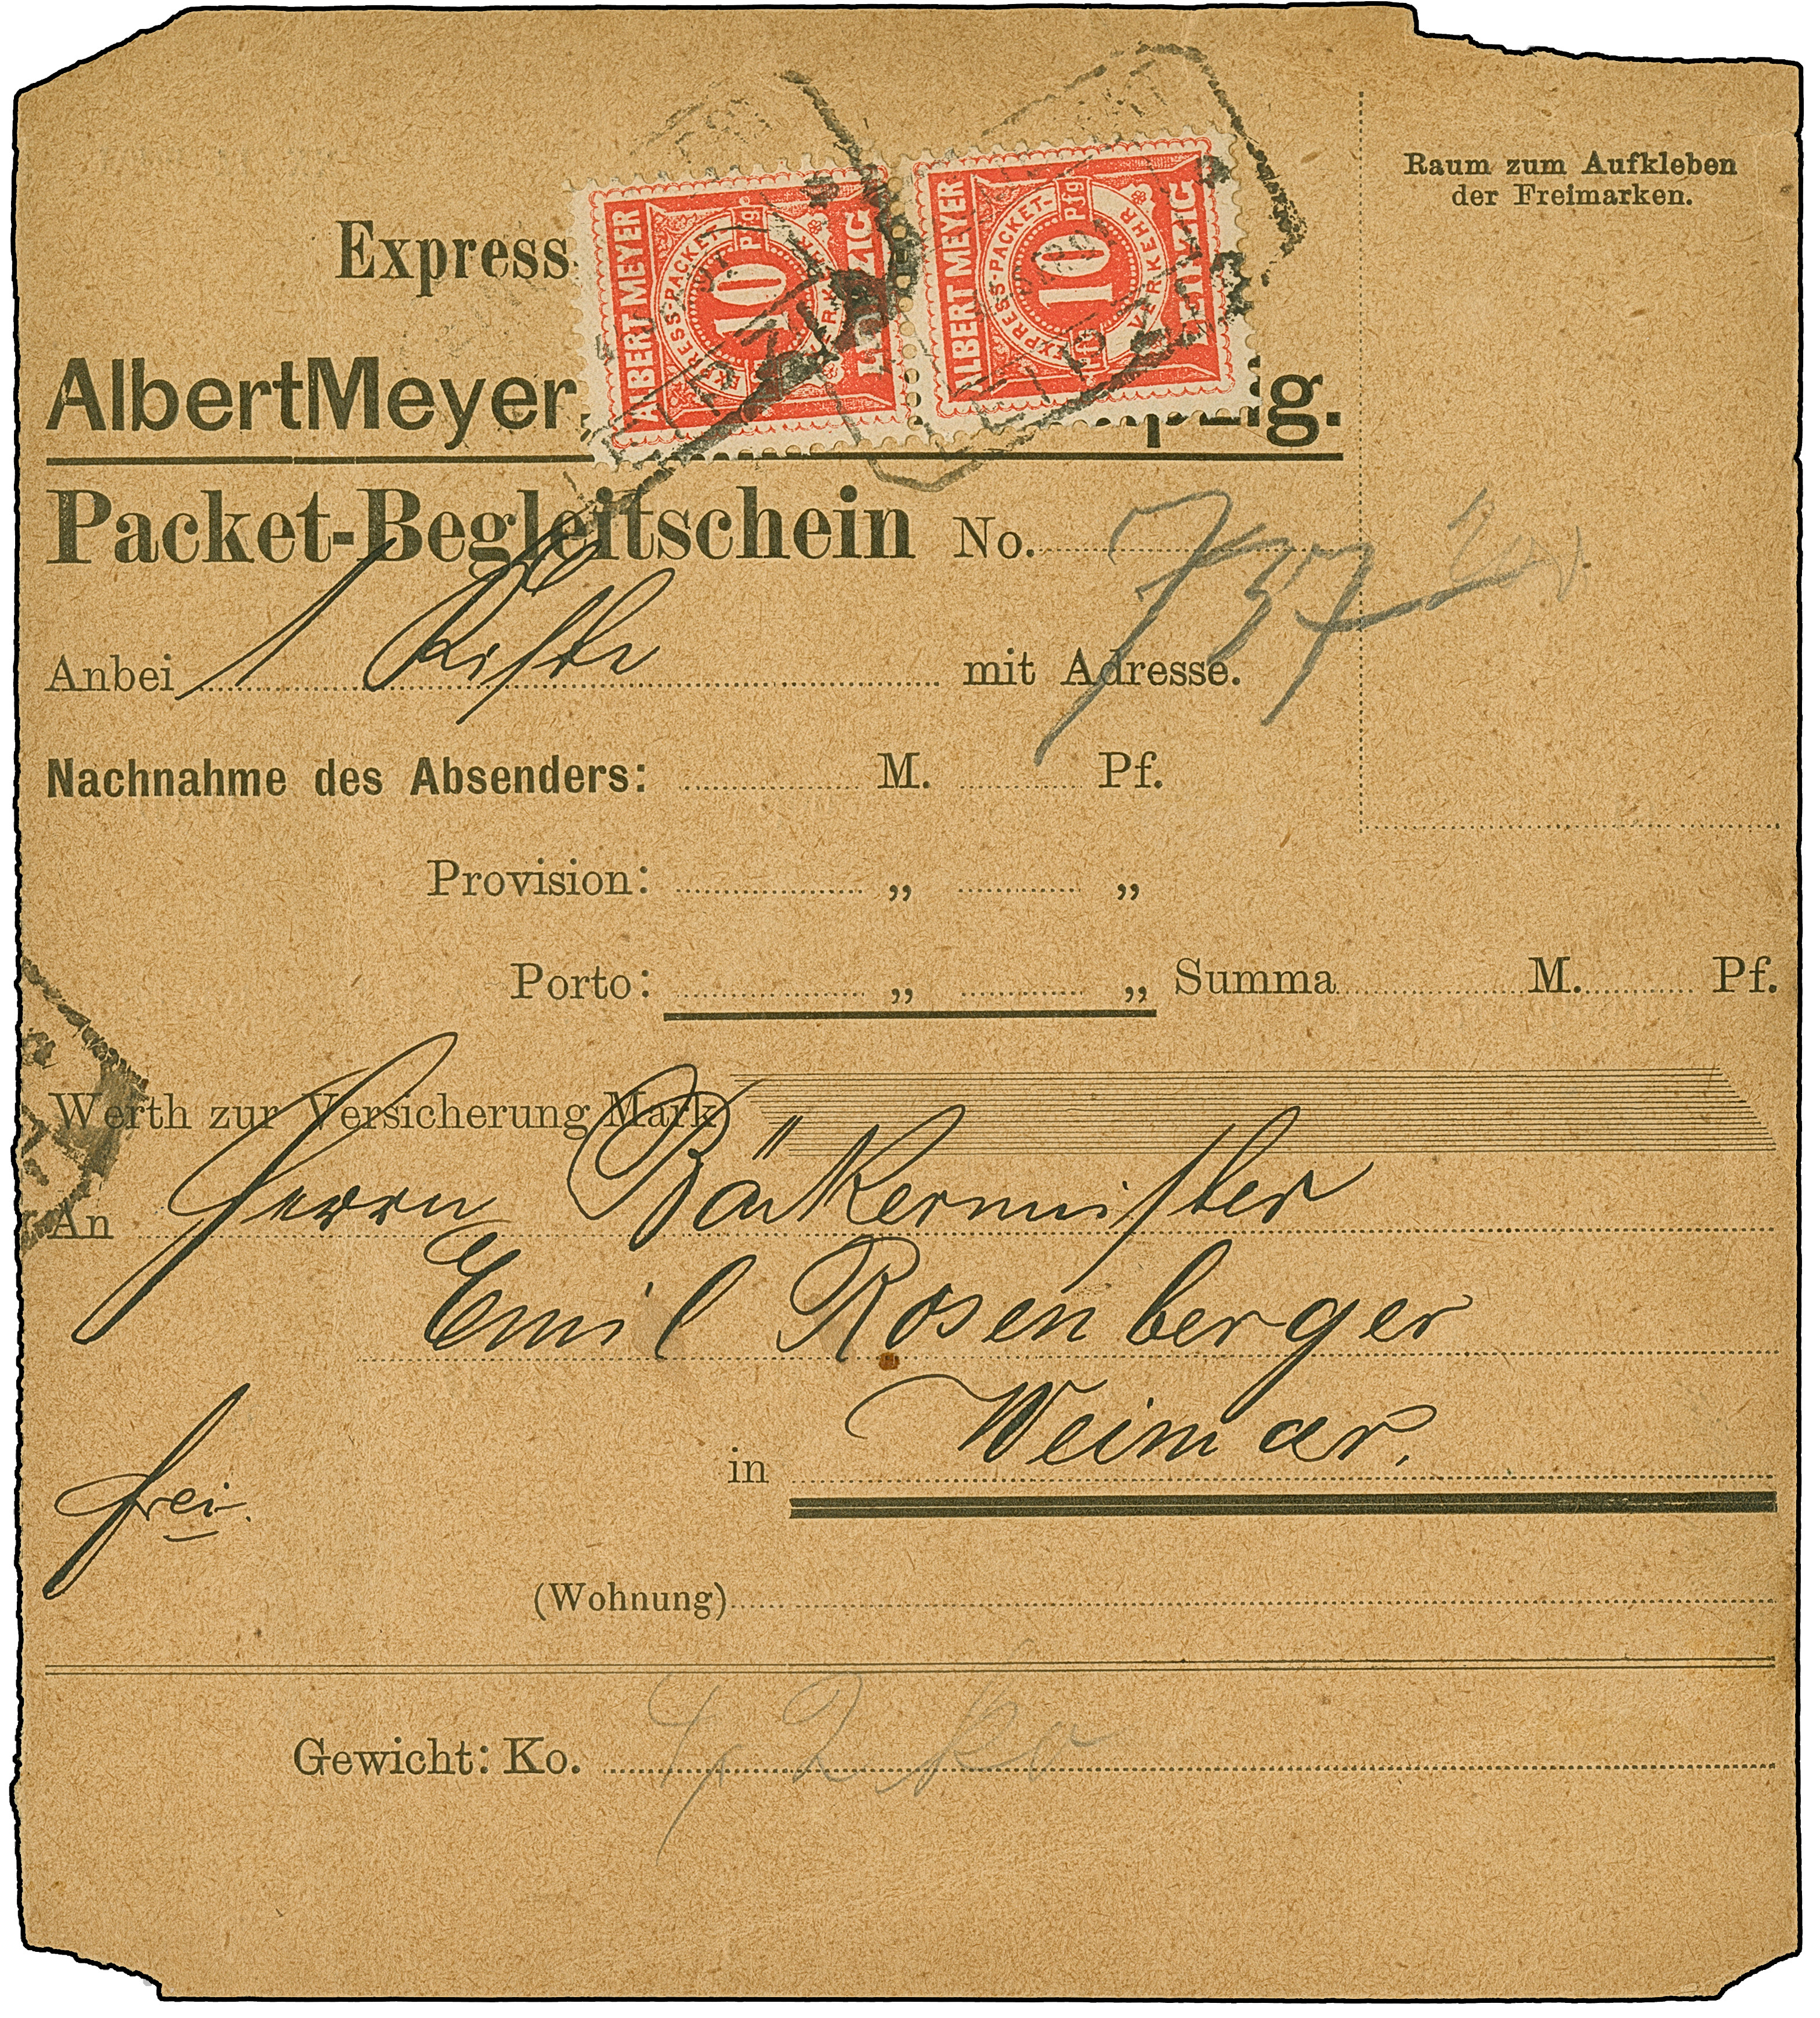 Raum zum Aufkleben
der Freimarken.
Express
ALBERT MEYER
EXPRESS-PACKET-VERKEHR
10 Pfg
LEIPZIG
ALBERT MEYER
EXPRESS-PACKET-VERKEHR
10 Pfg
LEIPZIG
Albert Meyer, Leipzig.
Packet-Begleitschein No. 737
Anbei 1 Kiste mit Adresse.
Nachnahme des Absenders: M. Pf.
Provision: „ „
Porto: „ „ Summa M. Pf.
Werth zur Versicherung Mark
An Herrn Bäckermeister
Emil Rosenberger
in Weimar.
frei.
(Wohnung)
Gewicht: Ko. 4,2 ko